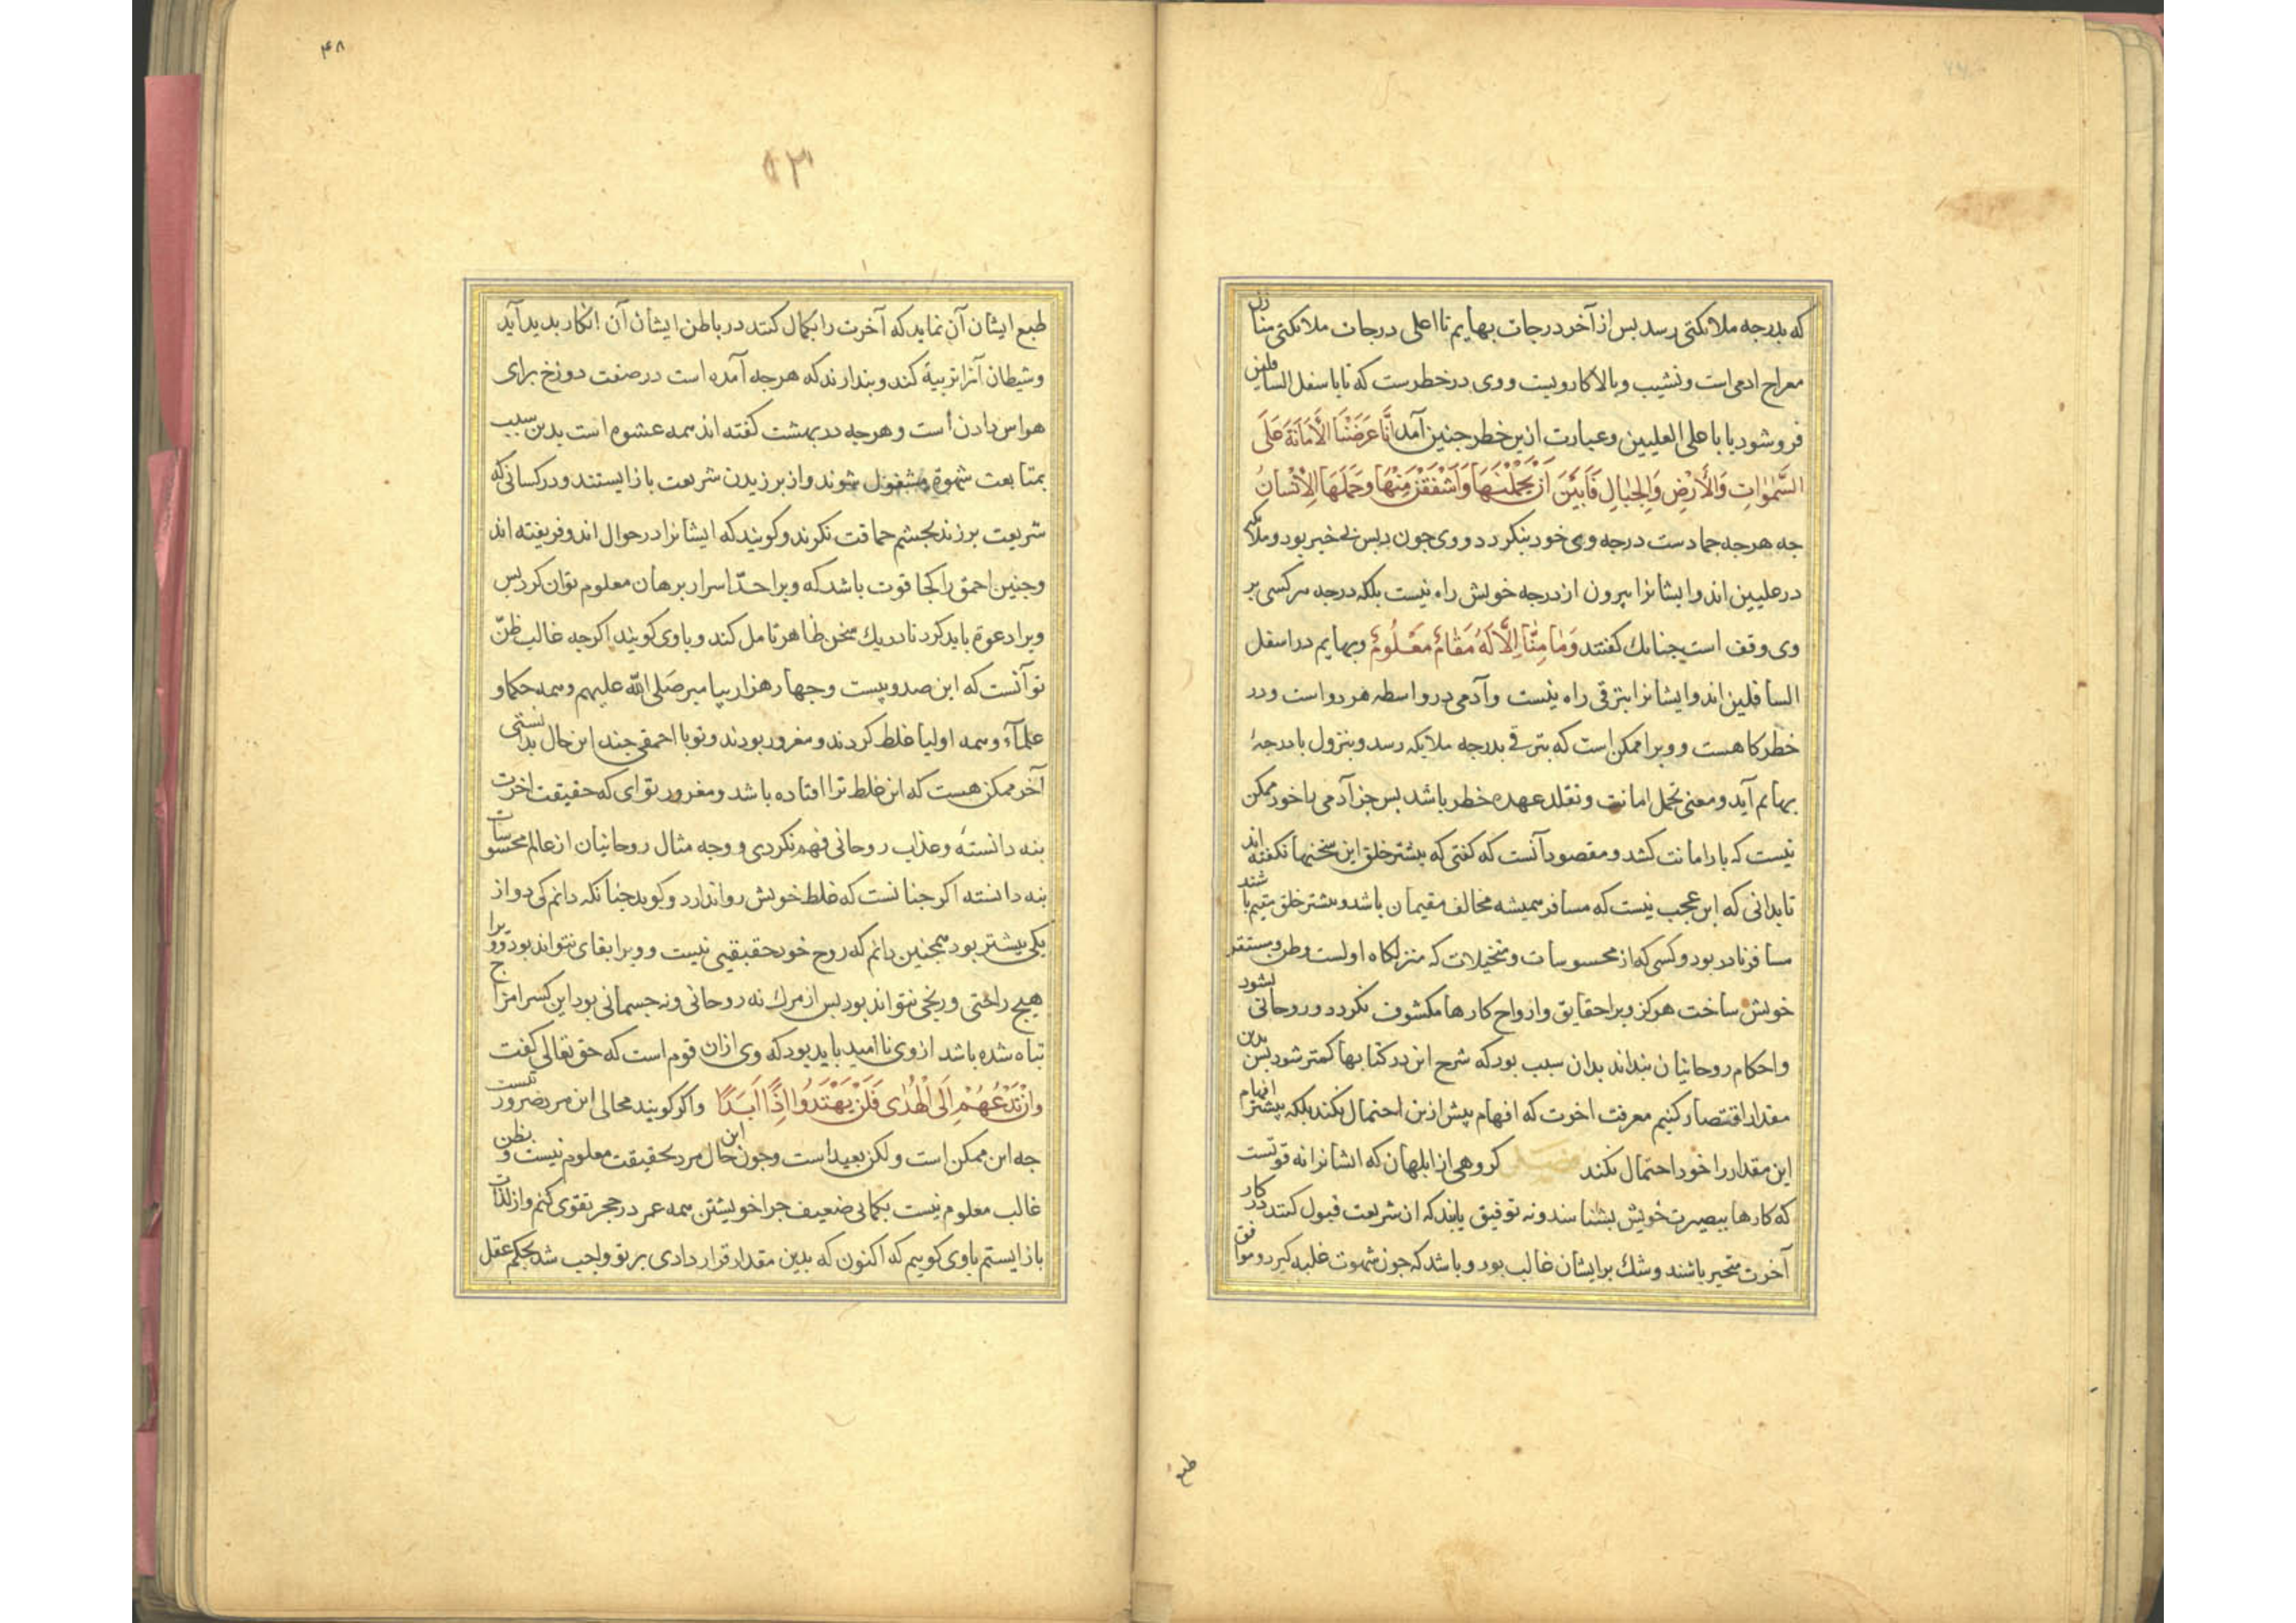 که بدرجه ملائکتی رسد بس از آخر درجات بهایم تا اعلی درجات ملائکتی منازل
معراج ادمی است ونشیب وبالا کار ویست ووی در خطرست که تا با سفل السافلین
فروشود یا باعلی العلیین وعبارت ازین خطر جنین آمد اِنَّا عَرَضْنَا الْأَمَانَةَ عَلَی
السَّمٰوَاتِ وَالْأَرْضِ وَالْجِبَالِ فَأَبَیْنَ اَنْ یَحْمِلْنَهَا وَاَشْفَقْنَ مِنْهَا وَحَمَلَهَا الْاِنْسَانُ
جه هرجه جمادست درجه وی خود بنکردد ووی جون بس بی خبر بود وملائکه
در علیین اند وایشانرا بیرون از درجه خویش راه نیست بلکه درجه هرکسی بر
وی وقف است جنانك کفتند وَمَا مِنَّا اِلَّا لَهُ مَقَامٌ مَعْلُومٌ وبهایم در اسفل
السافلین اند وایشانرا بترقی راه نیست وآدمی در واسطه هر دو است ودر
خطرکاهست وویرا ممکن است که بترقی بدرجه ملایکه رسد وبنزول بادرجهٔ
بهایم آید ومعنی تحمل امانت وتقلد عهده خطر باشد بس جز آدمی را خود ممکن
نیست که بار امانت کشد ومقصود آنست که کفتی که بیشتر خلق این سخنها نکفته اند
تا بدانی که این عجب نیست که مسافر همیشه مخالف مقیمان باشد وبیشتر خلق مقیم باشند
مسافر نادر بود وکسی که از محسوسات ومتخیلات که منزلکاه اولست وطن ومستقر
خویش ساخت هرکز ویرا حقایق وارواح کارها مکشوف نکردد وروحانی نشود
واحکام روحانیان نداند بدان سبب بود که شرح این در کتابها کمتر شود بس بدین
مقدار اقتصار کنیم معرفت اخرت که افهام بیش ازین احتمال نکند بلکه بیشتر افهام
این مقدار را خود احتمال نکند فصل کروهی از ابلهان که ایشانرا نه قوتست
که کارها ببصیرت خویش بشناسند ونه توفیق یابند که از شریعت قبول کنند در کار
آخرت متحیر باشند وشك بر ایشان غالب بود وباشد که جون شهوت غلبه کیرد وموافق
طبع
۴۸
طبع ایشان آن نماید که آخرت را بکمال کنند در باطن ایشان آن انکار بدید آید
وشیطان آنرا تربیة کند وبندارند که هرجه آمده است در صفت دوزخ برای
هراس دادن است وهرجه در بهشت کفته اند همه عشوه است بدین سبب
بمتابعت شهوة مشغول شوند واز برزیدن شریعت باز ایستند ودر کسانی که
شریعت برزند بجشم حماقت نکرند وکویند که ایشانرا در جوال اند وفریفته اند
وجنین احمق را کجا قوت باشد که ویرا حدّ اسرار برهان معلوم توان کرد بس
ویرا دعوة باید کرد تا در یك سخن ظاهر تامل کند وباوی کویند اکرجه غالب ظنّ
تو آنست که این صد وبیست وجهار هزار بیامبر صَلی الله علیهم وهمه حکما و
علماء وهمه اولیا غلط کردند ومغرور بودند وتو با احمقی جند این حال بدانستی
آخر ممکن هست که این غلط ترا افتاده باشد ومغرور توای که حقیقت اخرت
بنه دانستهٔ وعذاب روحانی فهم نکردی ووجه مثال روحانیان از عالم محسوسات
بنه دانسته اکر جنانست که غلط خویش روا ندارد وکوید جنانکه دانم کی دو از
یکی بیشتر بود همجنین دانم که روح خود حقیقتی نیست وویرا بقای نتواند بود وویرا
هیج راحتی ورنجی نتواند بود بس از مرك نه روحانی ونه جسمانی بود این کس را مزاج
تباه شده باشد از وی نا امید باید بود که وی ازان قوم است که حق تعالی کفت
وَاِنْ تَدْعُهُمْ اِلَی الْهُدٰی فَلَنْ یَهْتَدُوا اِذًا اَبَدًا واکر کویند محالی این مرد ضرور نیست
جه این ممکن است ولکن بعید است وجون این حال مرد بحقیقت معلوم نیست وبظن
غالب معلوم نیست بکمانی ضعیف جرا خویشتن همه عمر در حجر تقوی کنم واز لذات
باز ایستم باوی کوییم که اکنون که بدین مقدار قرار دادی بر تو واجب شد بحکم عقل